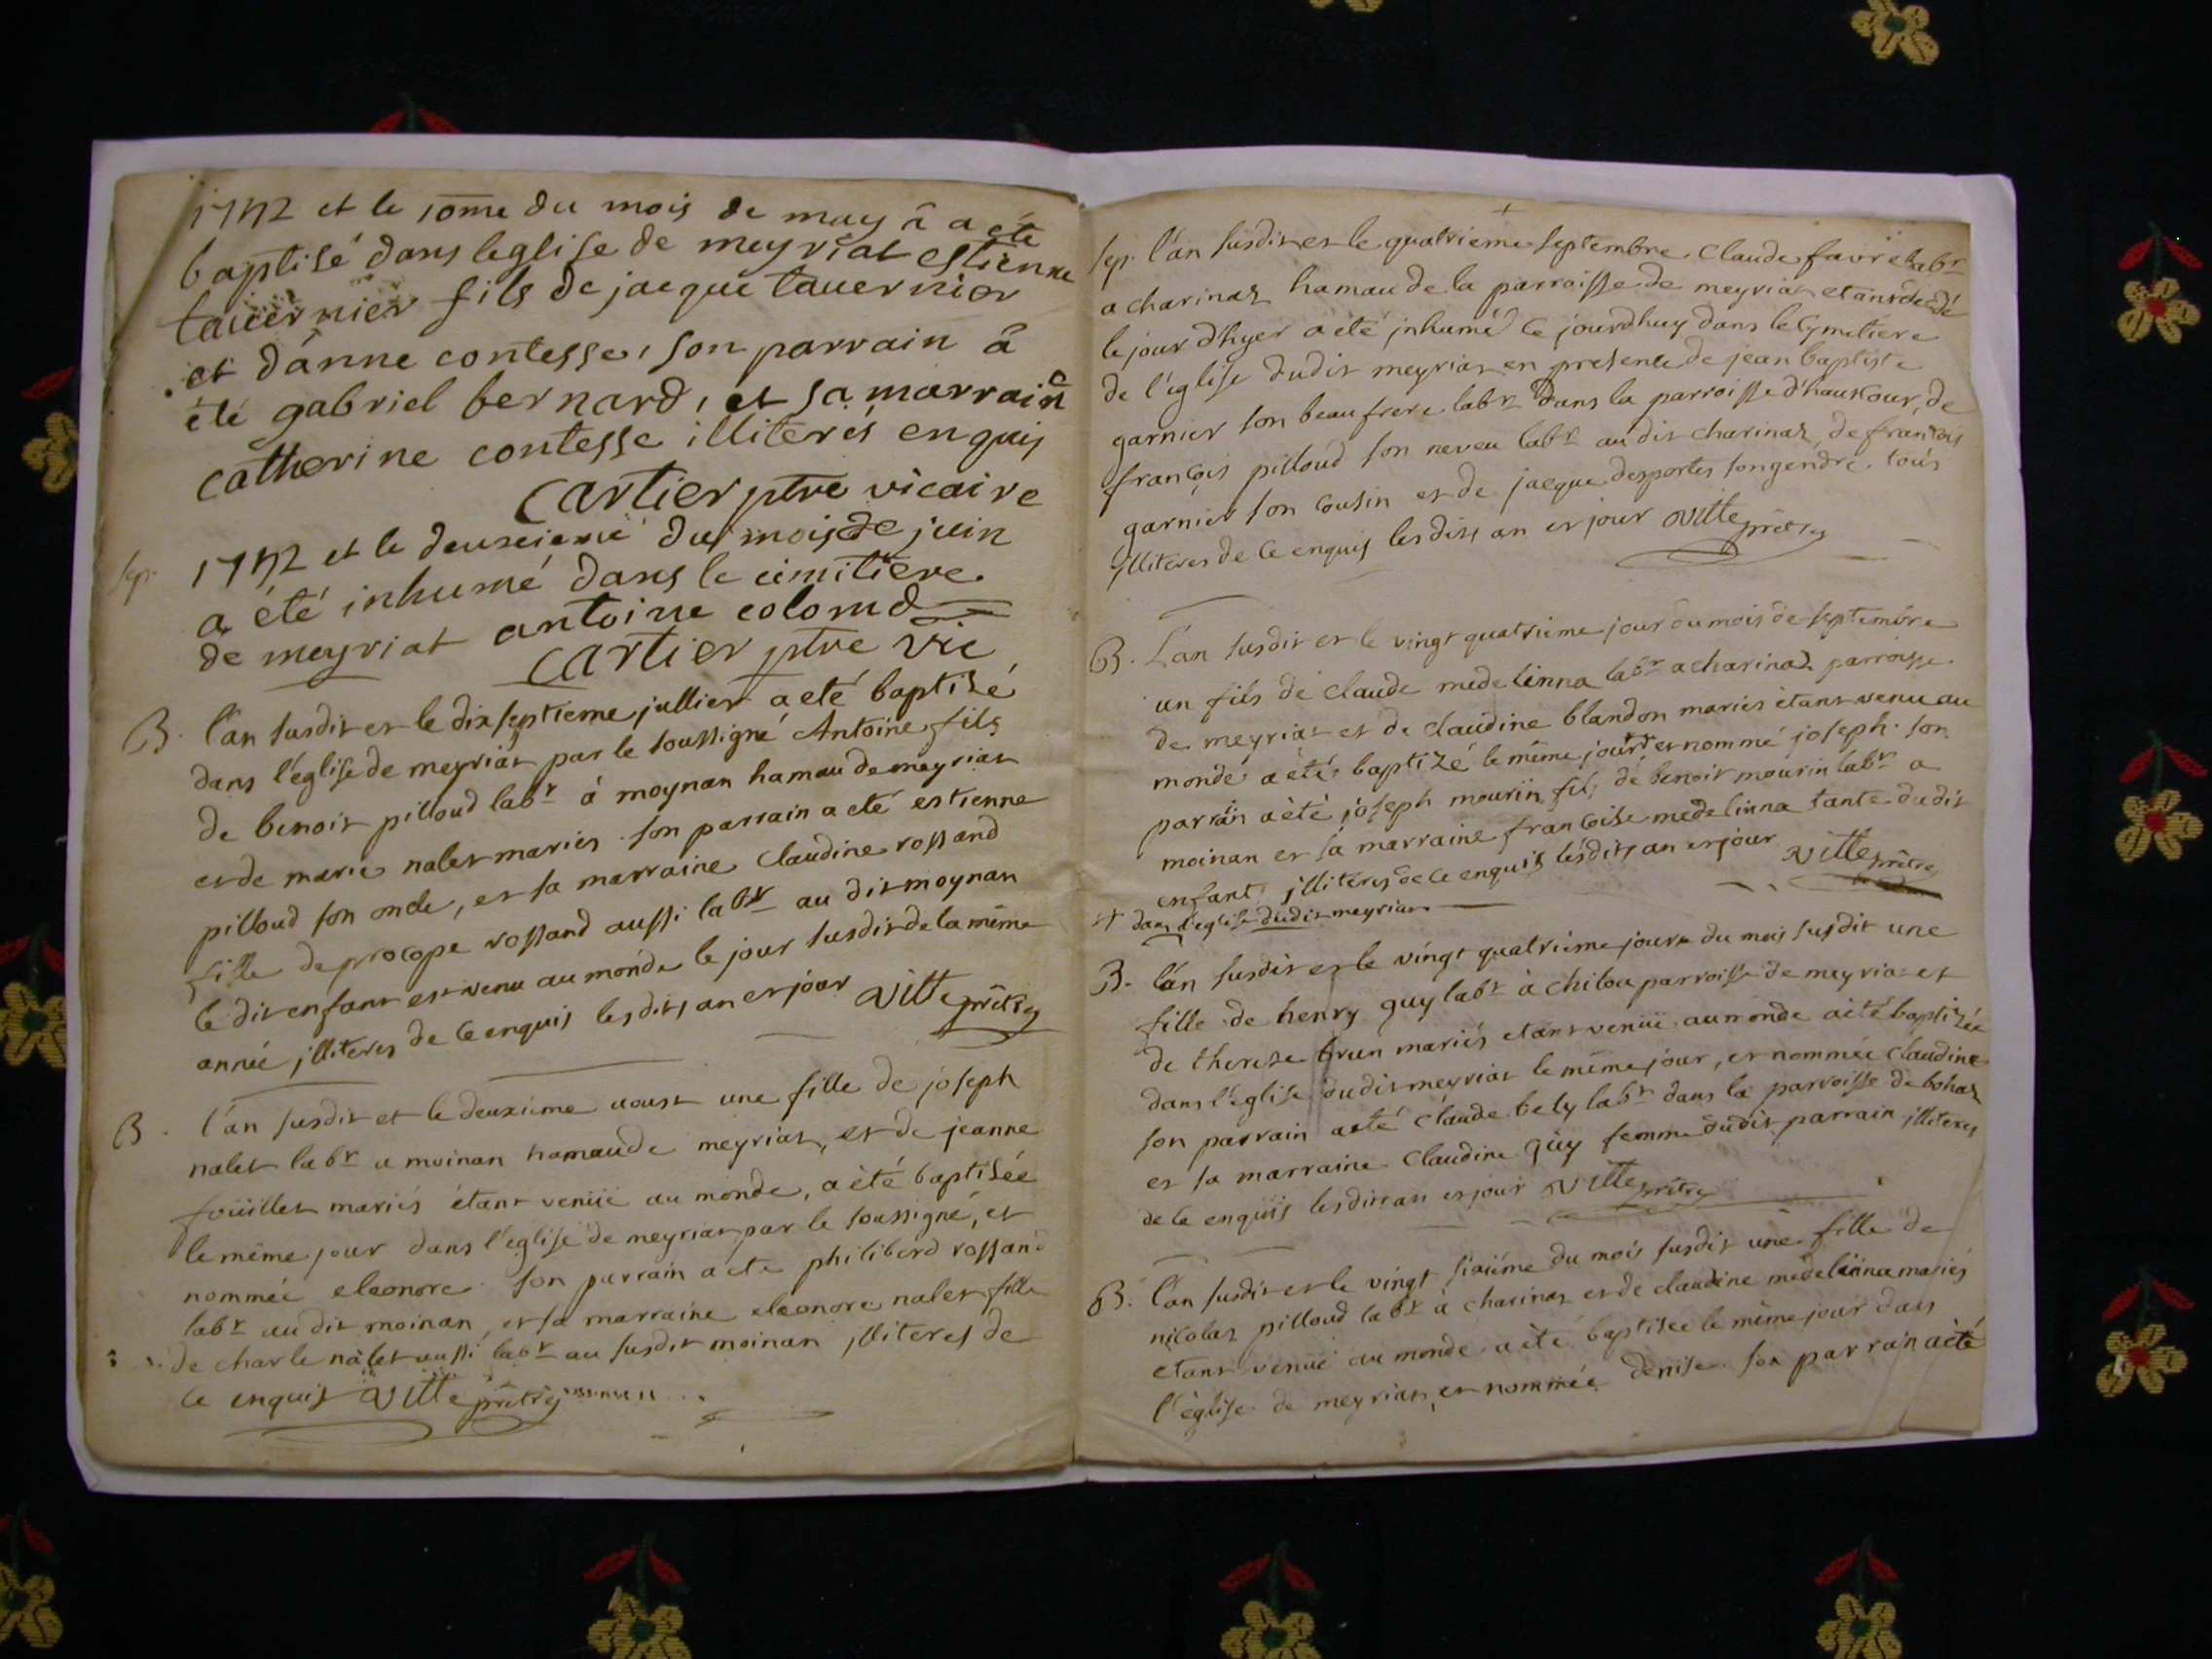 1742 et le 10me du mois de may â a été
baptisé dans leglise de meyriat estienne
tauernier fils de jacque tauernier
et d'anne contesse, son parrain â
été gabriel bernard, et sa marraine
catherine contesse illiterés enquis
cartier ptre vicaire
Sep. 1742 et le deuxieme du mois de juin
a été inhumé dans le cimitiere
de meyriat antoine colomd
cartier ptre vic
B. l'an susdit et le dixseptieme jullier a eté baptisé
dans l'église de meyriat par le soussigné Antoine fils
de benoit pilloud labr à moynan hamau de meyriat
et de marie nalet mariés son parrain a eté estienne
pilloud son oncle, et sa marraine claudine rossand
fille de procope rossand aussi labr au dit moynan
le dit enfant est venu au monde le jour susdit de la même
année, jlliteres de ce enquis lesdits an et jour Ville prêtre
B. l'an susdit et le deuxieme aoust une fille de joseph
nalet labr a moinan hamau de meyriat, et de jeanne
foüillet mariés étant venüe au monde, a été baptisée
le même jour dans l'église de meyriat par le soussigné, et
nommée eleonore. son parrain a été philiberd rossand
labr au dit moinan, et sa marraine eleonore nalet fille
de charle nalet aussi labr au susdit moinan jlliteres de
ce enquis Ville prêtre
Sep. l'an susdit et le quatrieme septembre claude favre labr
a charinaz hamau de la parroisse de meyriat etant décédé
le jour d'hyer a eté jnhumé ce jourdhuy dans le cymetiere
de l'église dudit meyriat en presence de jean baptiste
garnier son beaufrere labr dans la parroisse d'hautcour, de
françois pilloud son neveu labr au dit charinaz, de françois
garnier son cousin et de jacque desportes son gendre. tous
jlliteres de ce enquis lesdits an et jour Ville prêtre
B. L'an susdit et le vingt quatrieme jour du mois de septembre
un fils de claude medelinna labr a charinaz parroisse
de meyriat et de claudine blandon mariés étant venu au
monde a été baptizé le même jour et nommé joseph. son
parrain a été joseph mourin fils de benoit mourin labr a
moinan et sa marraine françoise medelinna tante dudit
enfant jlliteres de ce enquis lesdits an et jour Ville prêtre
dans l'église dudit meyriat
B. l'an susdit et le vingt quatrieme jour du mois susdit une
fille de henry guy labr à chilou parroisse de meyriat et
de therese brun mariés etant venüe au monde a été baptizée
dans l'église dudit meyriat le même jour, et nommée claudine
son parrain a eté claude bely labr dans la parroisse de bohaz
et sa marraine claudine guy femme dudit parrain jlliteres
de ce enquis lesdits an et jour Ville prêtre
B. l'an susdit et le vingt sixiéme du mois susdit une fille de
nicolaz pilloud labr à charinaz et de claudine medelinna mariés
etant venüe au monde a été baptisée le même jour dans
l'église de meyriat, et nommée denise. son parrain a été